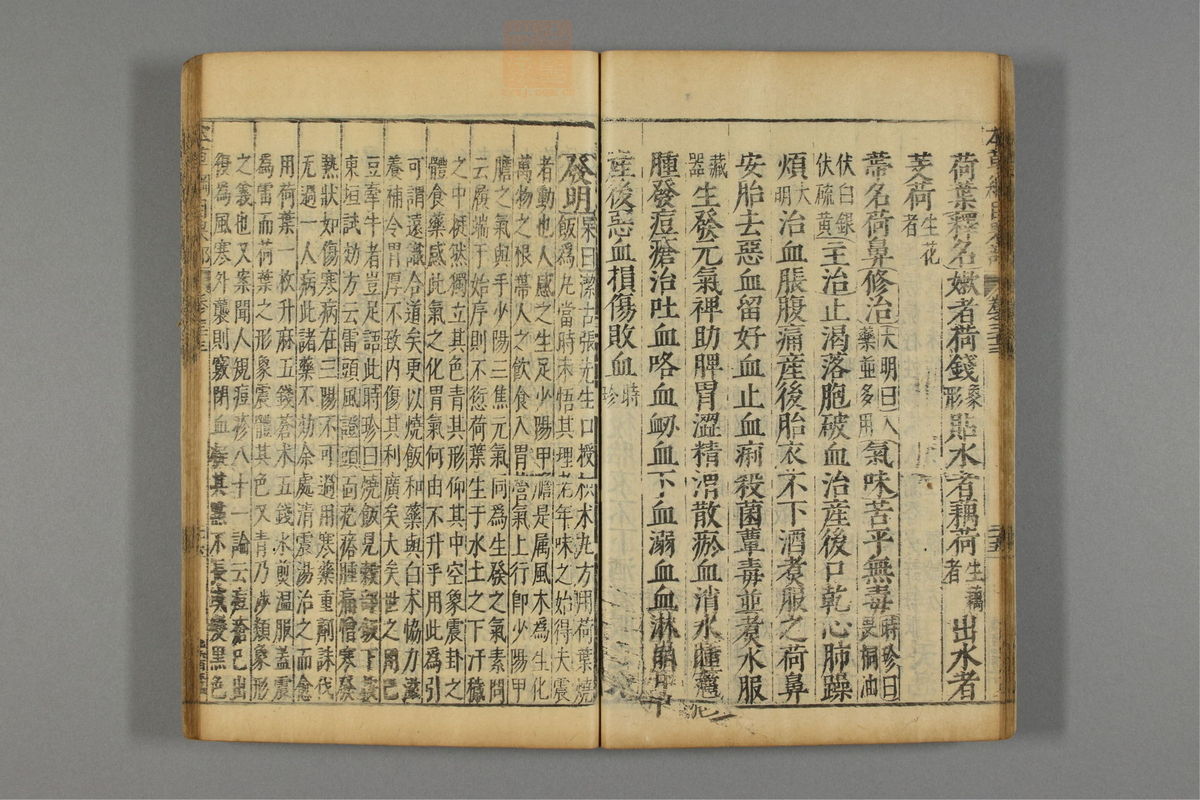 荷葉釋名嫩者荷錢象形貼水者藕荷生藕者出水者
芰荷生花者
蒂名荷鼻修治大明曰入藥並多用氣味苦平無毒時珍曰畏桐油
伏白銀伏硫黄主治止渴落胞破血治産後口乾心肺躁
煩大明治血脹腹痛産後胎衣不下酒煮服之荷鼻
安胎去惡血留好血止血痢殺菌蕈毒並煮水服
藏器生發元氣裨助脾胃澀精滑散瘀血消水腫癰
腫發痘瘡治吐血咯血衂血下血溺血血淋崩中
産後惡血損傷敗血時珍
發明杲曰潔古張先生口授枳朮丸方用荷葉燒
飯爲丸當時未悟其理老年味之始得夫震
者動也人感之生足少陽甲膽是属風木爲生化
萬物之根蒂人之飲食入胃營氣上行卽少陽甲
膽之氣與手少陽三焦元氣同爲生發之氣素問
云履端于始序則不愆荷葉生于水土之下汙穢
之中挺然獨立其色青其形仰其中空象震卦之
體食藥感此氣之化胃氣何由不升乎用此爲引
可謂遠識合道矣更以燒飯和藥與白朮協力滋
養補令胃厚不致内傷其利廣矣大矣世之用巴
豆牽牛者豈足語此時珍曰燒飯見穀部飯下
東垣試効方云雷頭風證頭面疙瘩腫痛憎寒發
熱狀如傷寒病在三陽不可過用寒藥重劑誅伐
无過一人病此諸藥不効余處清震湯治之而愈
用荷葉一枚升麻五錢蒼朮五錢水煎温服蓋震
爲雷而荷葉之形象震體其色又青乃渉類象形
之義也又案聞人規痘疹八十一論云痘瘡已出
復爲風寒外襲則竅閉血其㸃不長變黑色